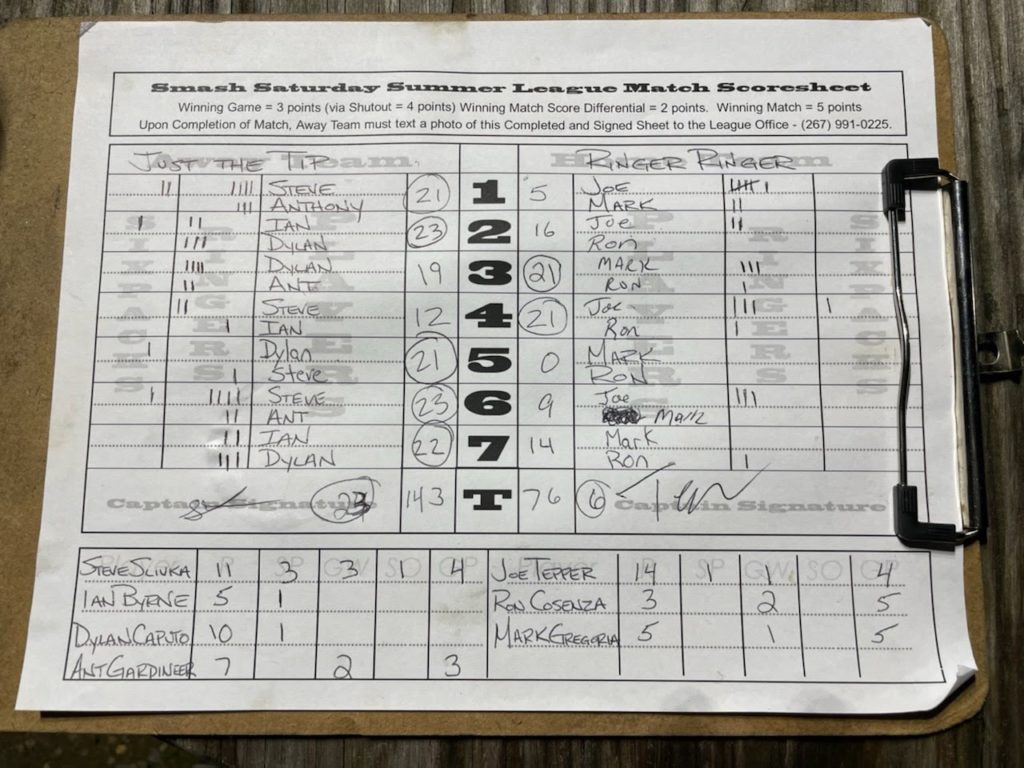 Smash Saturday Summer League Match Scoresheet
Winning Game = 3 points (via Shutout = 4 points) Winning Match Score Differential = 2 points. Winning Match = 5 points
Upon Completion of Match, Away Team must text a photo of this Completed and Signed Sheet to the League Office - (267) 991-0225.
JUST THE TIP RINGER RINGER
STEVE 21 1 5 JOE
ANTHONY MARK
IAN 23 2 16 Joe
DYLAN Ron
DYLAN 19 3 21 MARK
ANT RON
STEVE 12 4 21 Joe
IAN Ron
Dylan 21 5 0 MARK
Steve RON
STEVE 23 6 9 Joe
ANT Mark
IAN 22 7 14 Mark
DYLAN Ron
Captain Signature 23 143 T 76 6 Captain Signature
STEVE SLIVKA 11 3 3 1 4 JOE TEPPER 14 1 1 4
IAN BYRNE 5 1 RON COSENZA 3 2 5
DYLAN CAPUTO 10 1 MARK GREGORIA 5 1 5
ANT GARDINEER 7 2 3